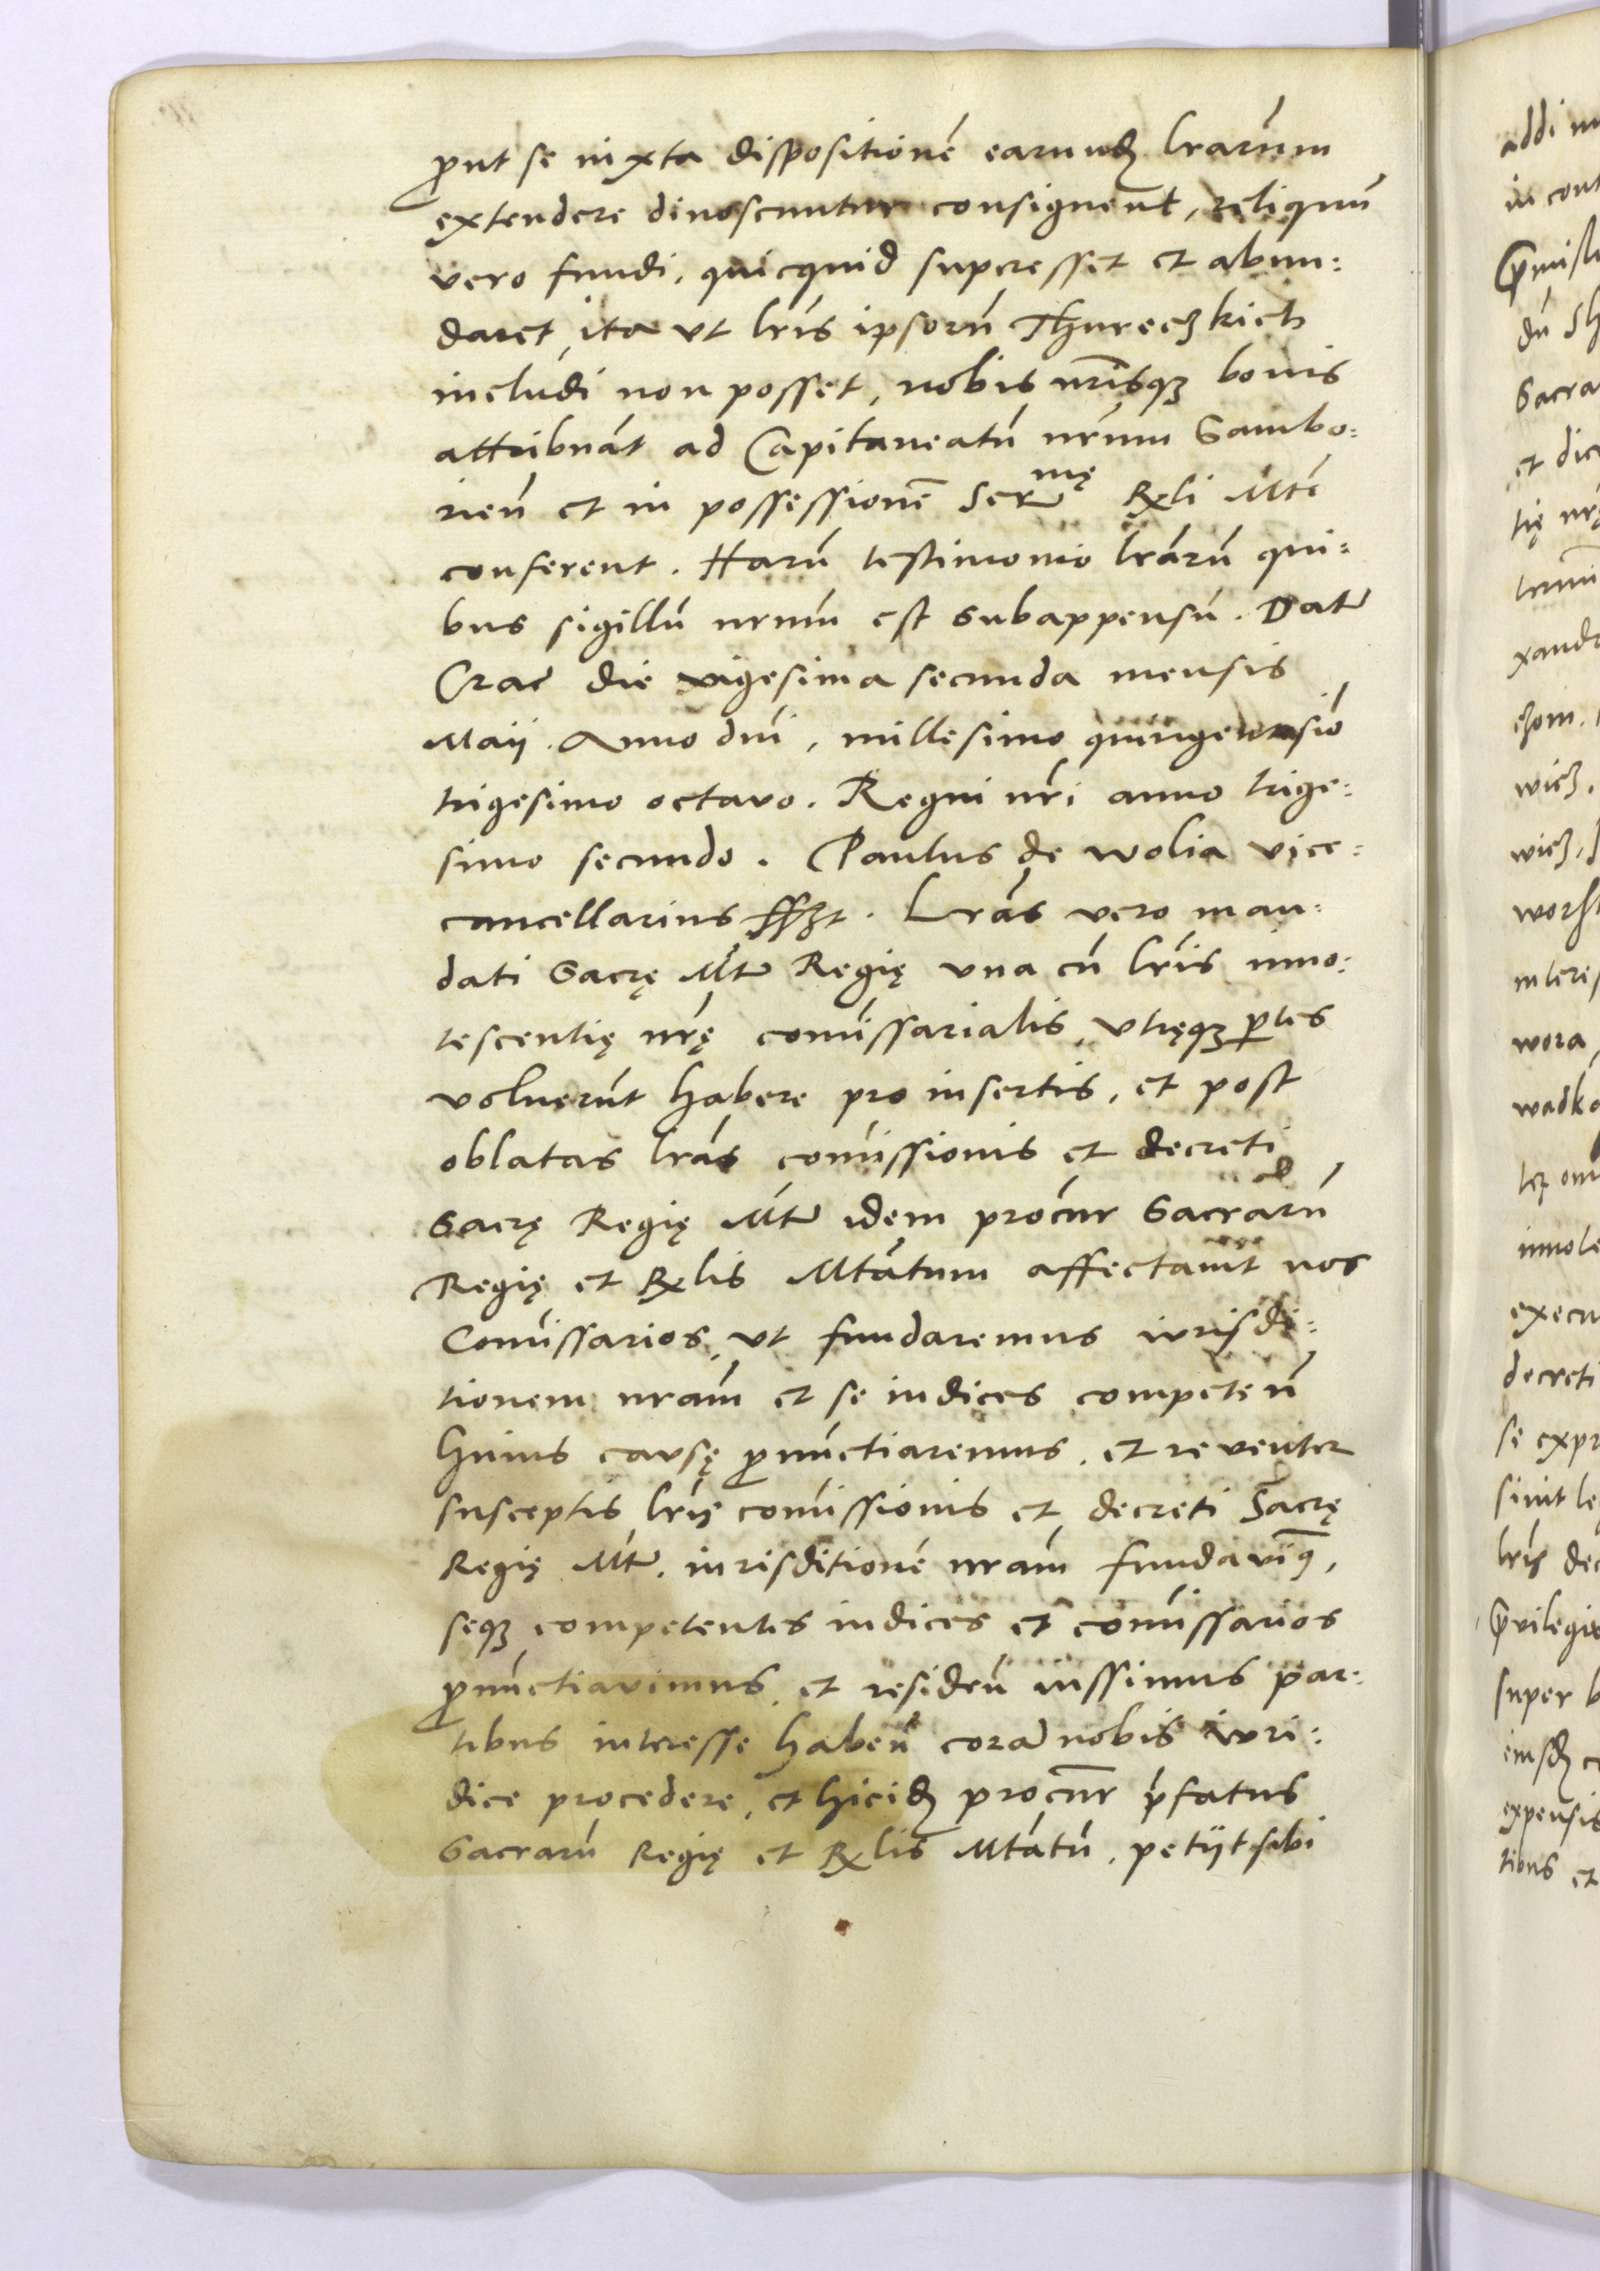 ꝓut se iuxta dispositionē earundꝫ lrarum
extendere dinoscuntur consignent, reliquū
vero fundi, quicquid superesset et abun:
daret, ita vt lris ipsorū Thureczkich
includi non posset, nobis nrisqꝫ bonis
attribuāt ad Capitaneatū nrum Sambo:
rien̄ et in possessionē Sermę Rҳli Mti
conferent. Harū testimonio lrarū qui:
bus sigillū nrum est subappensū. Dat̄
Crac̄ die vigesima secunda mensis
Maij. Anno dni, millesimo quingentesiō
trigesimo octavo. Regni nri anno trige:
simo secundo. Paulus de wolia vice:
cancellarius sszt. Lras vero man:
dati Sacrę Mt̄ Regię vna cū lris inno:
tescentię nrę com̄issarialis, vtręqꝫ ꝑtes
voluerūt habere pro insertis, et post
oblatas lras com̄issionis et decreti
Sacrę Regię Mt̄ idem procur Sacrarū
Regię et Rҳlis Mtatum affectauit nos
Com̄issarios, vt fundaremus iurisdi:
tionem nram et se iudices competen̄
huius causę ꝓnūctiaremus. et reuenter
susceptis lris com̄issionis et decreti Sacrę
Regię Mt̄. iurisditionē nram fundavimꝰ,
seqꝫ competentes iudices et com̄issarios
ꝓnūctiavimus, et residen̄ iussimus par:
tibus interesse haben̄ corā nobis iuri:
dice procedere, et hicidꝫ procur p̄fatus
Sacrarū Regię et Rҳlis Mtatū, petijt sibi
addi
in cont
Sacra
et dic
wicz,
wora
wadko
execu
decreti
se expr
super
expensis
tibus et